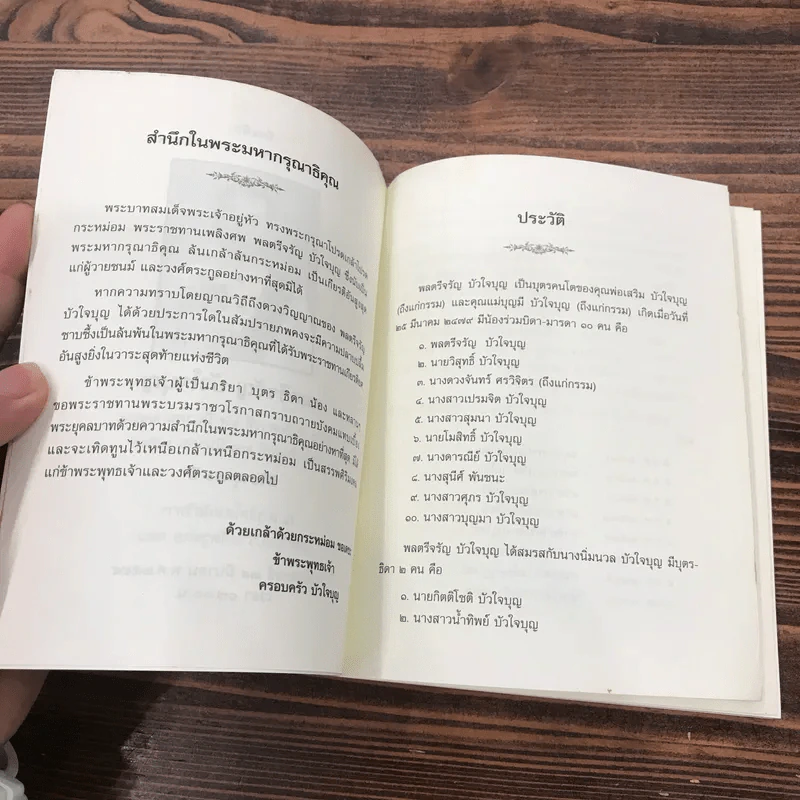 สำนึกในพระมหากรุณาธิคุณ
พระบาทสมเด็จพระเจ้าอยู่หัว ทรงพระกรุณาโปรดเกล้าโปรด
กระหม่อม พระราชทานเพลิงศพ พลตรีจรัญ บัวใจบุญ ซึ่งนับเป็น
พระมหากรุณาธิคุณ ล้นเกล้าล้นกระหม่อม เป็นเกียรติอันสูงสุด
แก่ผู้วายชนม์ และวงศ์ตระกูลอย่างหาที่สุดมิได้
หากความทราบโดยญาณวิถีถึงดวงวิญญาณของ พลตรีจรัญ
บัวใจบุญ ได้ด้วยประการใดในสัมปรายภพคงจะมีความปลาบปลื้ม
ซาบซึ้งเป็นล้นพ้นในพระมหากรุณาธิคุณที่ได้รับพระราชทานเกียรติยศ
อันสูงยิ่งในวาระสุดท้ายแห่งชีวิต
ข้าพระพุทธเจ้าผู้เป็นภริยา บุตร ธิดา น้อง และหลานๆ
ขอพระราชทานพระบรมราชวโรกาสกราบถวายบังคมแทบเบื้อง
พระยุคลบาทด้วยความสำนึกในพระมหากรุณาธิคุณอย่างหาที่สุด มิได้
และจะเทิดทูนไว้เหนือเกล้าเหนือกระหม่อม เป็นสรรพสิริมงคล
แก่ข้าพระพุทธเจ้าและวงศ์ตระกูลตลอดไป
ด้วยเกล้าด้วยกระหม่อม ขอเดชะ
ข้าพระพุทธเจ้า
ครอบครัว บัวใจบุญ
ประวัติ
พลตรีจรัญ บัวใจบุญ เป็นบุตรคนโตของคุณพ่อเสริม บัวใจบุญ
(ถึงแก่กรรม) และคุณแม่บุญมี บัวใจบุญ (ถึงแก่กรรม) เกิดเมื่อวันที่
๒๕ มีนาคม ๒๔๗๙ มีน้องร่วมบิดา-มารดา ๑๐ คน คือ
๑. พลตรีจรัญ บัวใจบุญ
๒. นายวิสุทธิ์ บัวใจบุญ
๓. นางดวงจันทร์ ศรวิจิตร (ถึงแก่กรรม)
๔. นางสาวเปรมจิต บัวใจบุญ
๕. นางสาวสุมนา บัวใจบุญ
๖. นายโมสิทธิ์ บัวใจบุญ
๗. นางดารณีย์ บัวใจบุญ
๘. นางสุนีศ์ พันชนะ
๙. นางสาวศุภร บัวใจบุญ
๑๐. นางสาวบุญมา บัวใจบุญ
พลตรีจรัญ บัวใจบุญ ได้สมรสกับนางนิ่มนวล บัวใจบุญ มีบุตร-
ธิดา ๒ คน คือ
๑. นายกิตติโชติ บัวใจบุญ
๒. นางสาวน้ำทิพย์ บัวใจบุญ